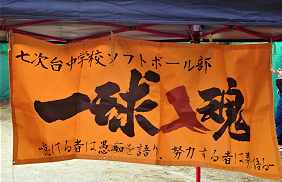 七次台中学校ソフトボール部
一球入魂
怠ける者は愚痴を語り、努力する者は夢を語る